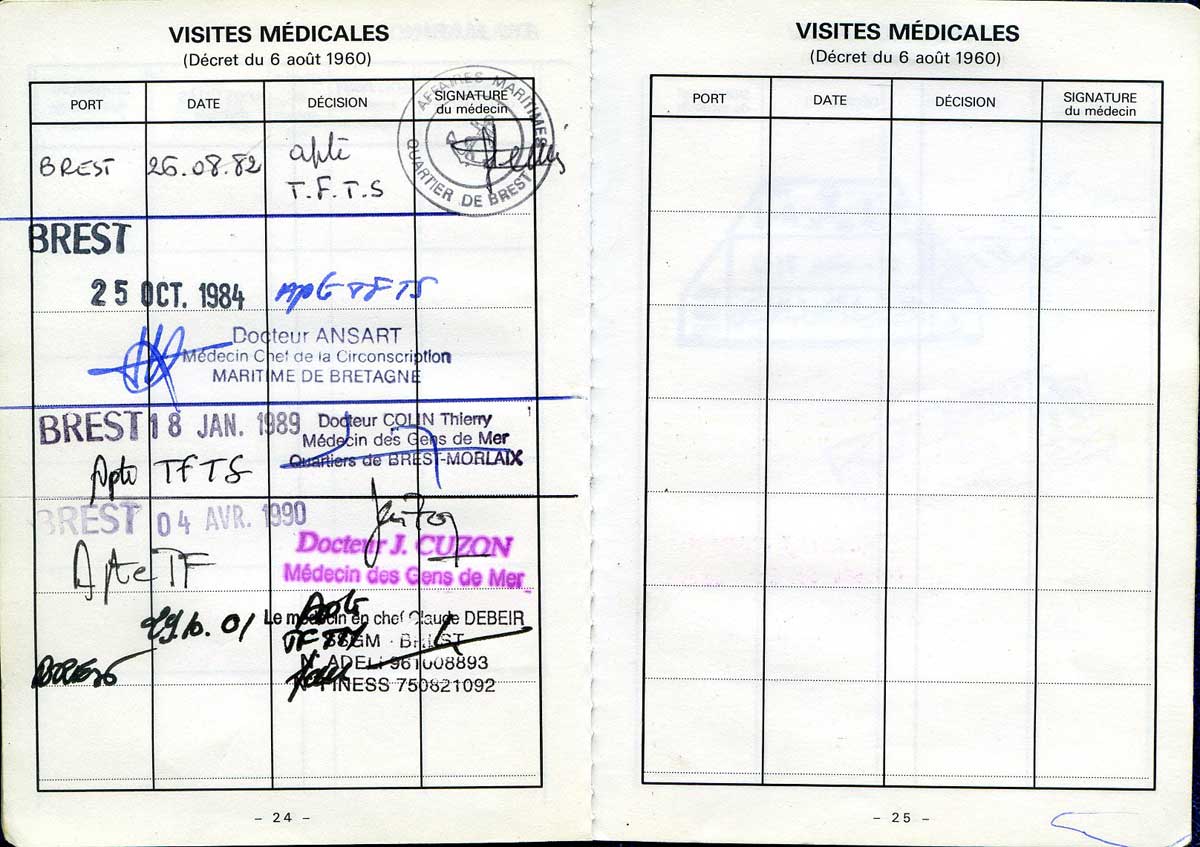 VISITES MÉDICALES
(Décret du 6 août 1960)
PORT DATE DÉCISION SIGNATURE
du médecin
AFFAIRES MARITIMES
QUARTIER DE BREST
BREST 26.08.82 apte
T.F.T.S
BREST
25 OCT. 1984 Apte TFTS
Docteur ANSART
Médecin Chef de la Circonscription
MARITIME DE BRETAGNE
BREST 18 JAN. 1989 Docteur COLIN Thierry
Médecin des Gens de Mer
Quartiers de BREST-MORLAIX
Apte TFTS
BREST 04 AVR. 1990
Docteur J. CUZON
Médecin des Gens de Mer
Apte TF
Apte
Le médecin en chef Claude DEBEIR
SSGM - BREST
N° ADELI 961008893
N° FINESS 750821092
- 24 -
VISITES MÉDICALES
(Décret du 6 août 1960)
PORT DATE DÉCISION SIGNATURE
du médecin
- 25 -